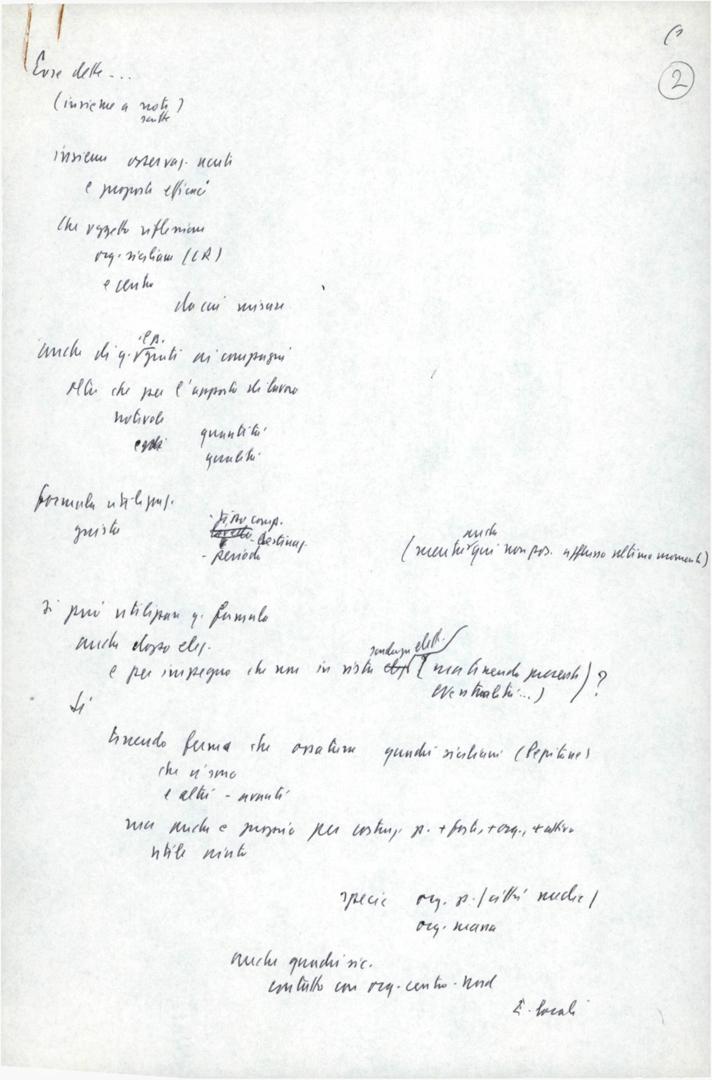 2
Cose dette ...
(insieme a note)
scritte
insieme osservaz. acuti
e proposte efficaci
che oggetto riflessione
org. siciliane (CR)
e centro
da cui misure
anche di q. giunti ai compagni
oltre che per l'apporto di lavoro
notevole
quantità
qualità
formula utilizzaz.
giusta
- tipo comp.
- destinaz.
- periodo
anche
(mentre qui non pos. afflusso ultimo momento)
Si può utilizzare q. formula
anche dopo elez.
e per impegno che non in vista elett. (ma tenendo presenti) ?
eventualità...)
Sì
tenendo fermo che ossatura quadri siciliani (
che ci sono
e altri - avanti
ma anche e proprio per costruz. p. + forte, + org., + attivo
utile aiuto
specie org. p. (città medie)
org. massa
anche quadri sic.
contatto con org. centro-nord
E. locali